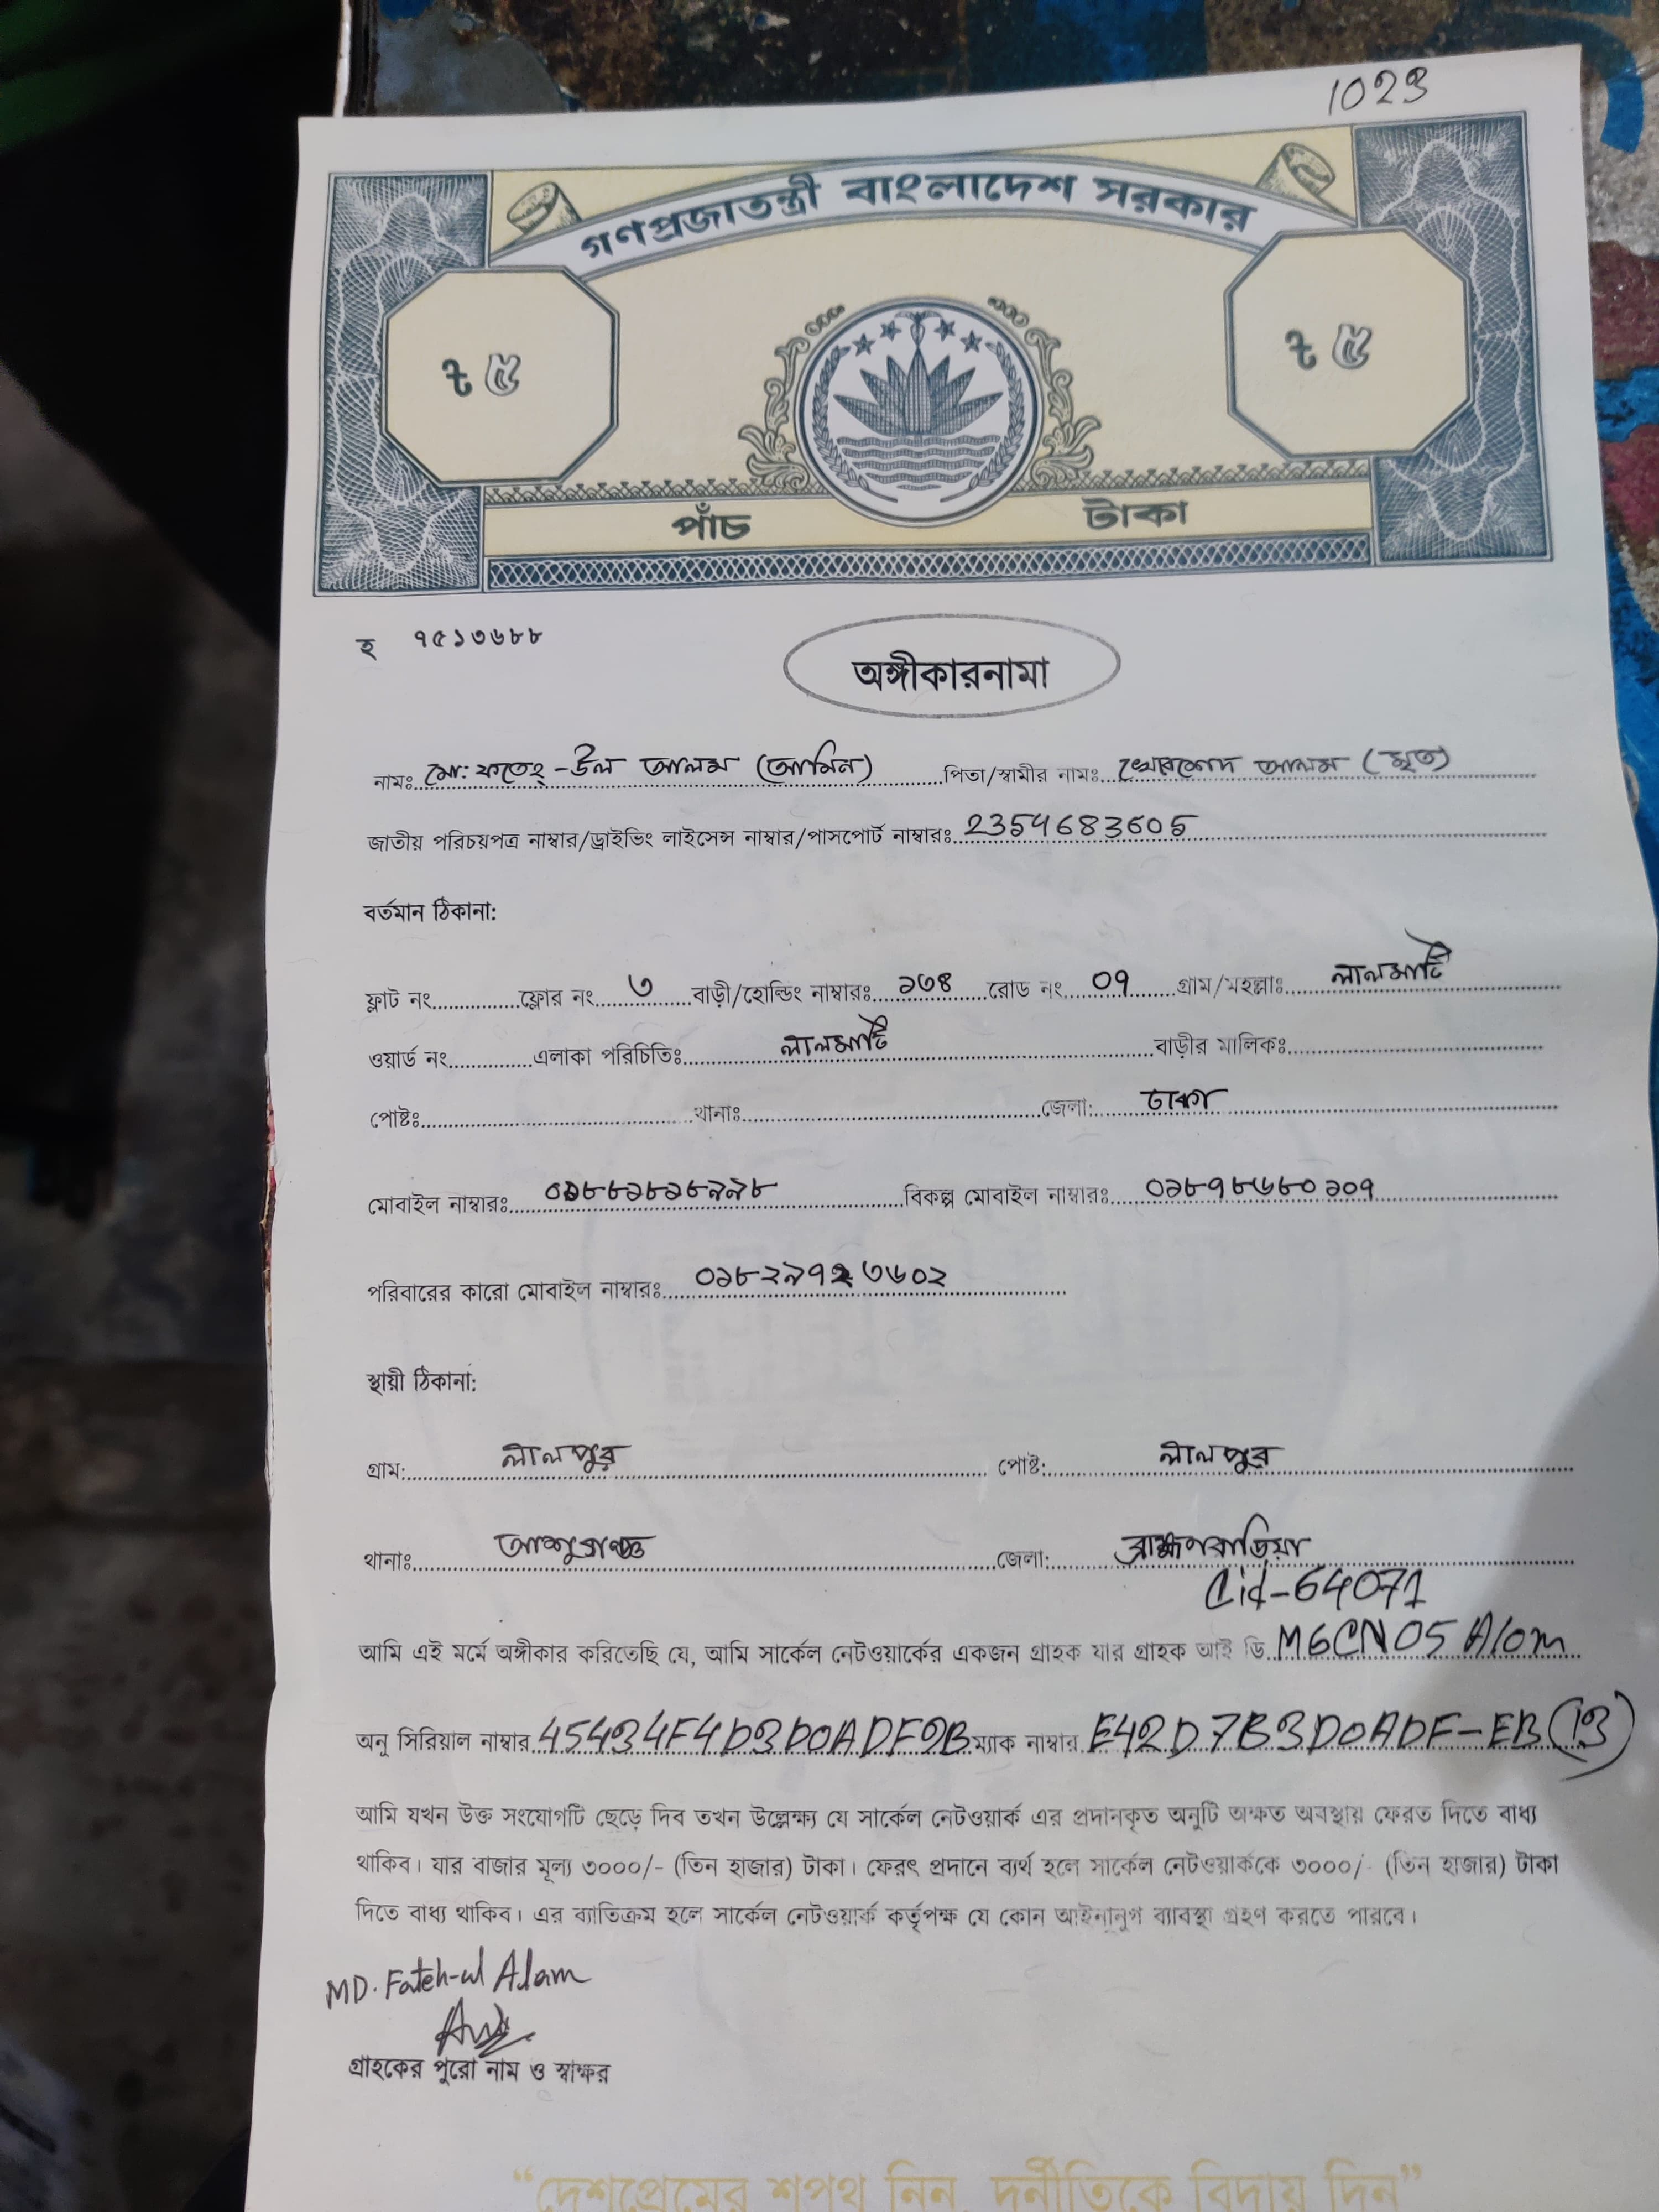 1023
গণপ্রজাতন্ত্রী বাংলাদেশ সরকার
৳ ৫ ৳ ৫
পাঁচ টাকা
হ ৭৫১৩৬৮৮
অঙ্গীকারনামা
নামঃ মো: ফতেহ্-উল আলম (আমিন) পিতা/স্বামীর নামঃ খোরশেদ আলম (মৃত)
জাতীয় পরিচয়পত্র নাম্বার/ড্রাইভিং লাইসেন্স নাম্বার/পাসপোর্ট নাম্বারঃ 2354683605
বর্তমান ঠিকানা:
ফ্লাট নং ফ্লোর নং ৩ বাড়ী/হোল্ডিং নাম্বারঃ ১৩৪ রোড নং ০৭ গ্রাম/মহল্লাঃ লালমাটি
ওয়ার্ড নং এলাকা পরিচিতিঃ লালমাটি বাড়ীর মালিকঃ
পোষ্টঃ থানাঃ জেলা: ঢাকা
মোবাইল নাম্বারঃ বিকল্প মোবাইল নাম্বারঃ ০১৮৭৮৬৬৮০১০৭
পরিবারের কারো মোবাইল নাম্বারঃ ০১৮২৯৭২৩৬০২
স্থায়ী ঠিকানা:
গ্রাম: লালপুর পোষ্ট: লালপুর
থানাঃ আশুগঞ্জ জেলা: ব্রাহ্মণবাড়িয়া
Cid-64071
আমি এই মর্মে অঙ্গীকার করিতেছি যে, আমি সার্কেল নেটওয়ার্কের একজন গ্রাহক যার গ্রাহক আই ডি M6CN05 Alom
অনু সিরিয়াল নাম্বার 45434F4D3D0ADF9B ম্যাক নাম্বার E42D7B3D0ADF-EB (13)
আমি যখন উক্ত সংযোগটি ছেড়ে দিব তখন উল্লেক্ষ্য যে সার্কেল নেটওয়ার্ক এর প্রদানকৃত অনুটি অক্ষত অবস্থায় ফেরত দিতে বাধ্য
থাকিব। যার বাজার মূল্য ৩০০০/- (তিন হাজার) টাকা। ফেরৎ প্রদানে ব্যর্থ হলে সার্কেল নেটওয়ার্ককে ৩০০০/- (তিন হাজার) টাকা
দিতে বাধ্য থাকিব। এর ব্যাতিক্রম হলে সার্কেল নেটওয়ার্ক কর্তৃপক্ষ যে কোন আইনানুগ ব্যাবস্থা গ্রহণ করতে পারবে।
MD. Fateh-ul Alam
গ্রাহকের পুরো নাম ও স্বাক্ষর
“দেশপ্রেমের শপথ নিন, দুর্নীতিকে বিদায় দিন”